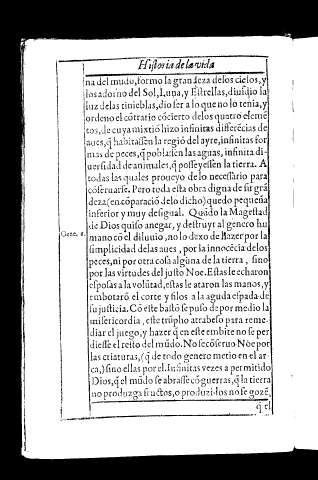 Historia de la vida
na del mũdo, formo la grandeza delos cielos, y
los adorno del Sol, Luna, y Estrellas, diuidio la
luz delas tinieblas, dio ser a lo que no lo tenia, y
ordeno el cõtratio cõcierto delos quatro elemẽ
tos, de cuya mixtiõ hizo infinitas differẽcias de
aues, q̃ habitassen la regiõ del ayre, infinitas for
mas de peces, q̃ poblassen las aguas, infinita di
uersidad de animales, q̃ posseyessen la tierra. A
todas las quales proueyo de lo necessario para
cõseruarse. Pero toda esta obra digna de su grã
deza (en cõparaciõ delo dicho) quedo pequeña
inferior y muy desigual. Quãdo la Magestad
de Dios quiso anegar, y destruyr al genero hu
Gene. 8.
mano cõ el diluuio, no lo dexo de hazer por la
simplicidad delas aues, por la innocẽcia delos
peces, ni por otra cosa alguna de la tierra, sino
por las virtudes del justo Noe. Estas le echaron
esposas a la volũtad, estas le ataron las manos, y
embotarõ el corte y filos a la aguda espada de
su justicia. Cõ este bastõ se puso de por medio la
misericordia, este triũpho atrabeso para reme-
diar el juego, y hazer q̃ en este embite no se per
diesse el resto del mũdo. No se cõseruo Noe por
las criaturas, (q̃ de todo genero metio en el ar
ca,) sino ellas por el. Infinitas vezes a permitido
Dios, q̃ el mũdo se abrasse cõ guerras, q̃ la tierra
no produzga fructos, o produzidos no se gozẽ,
q̃ el